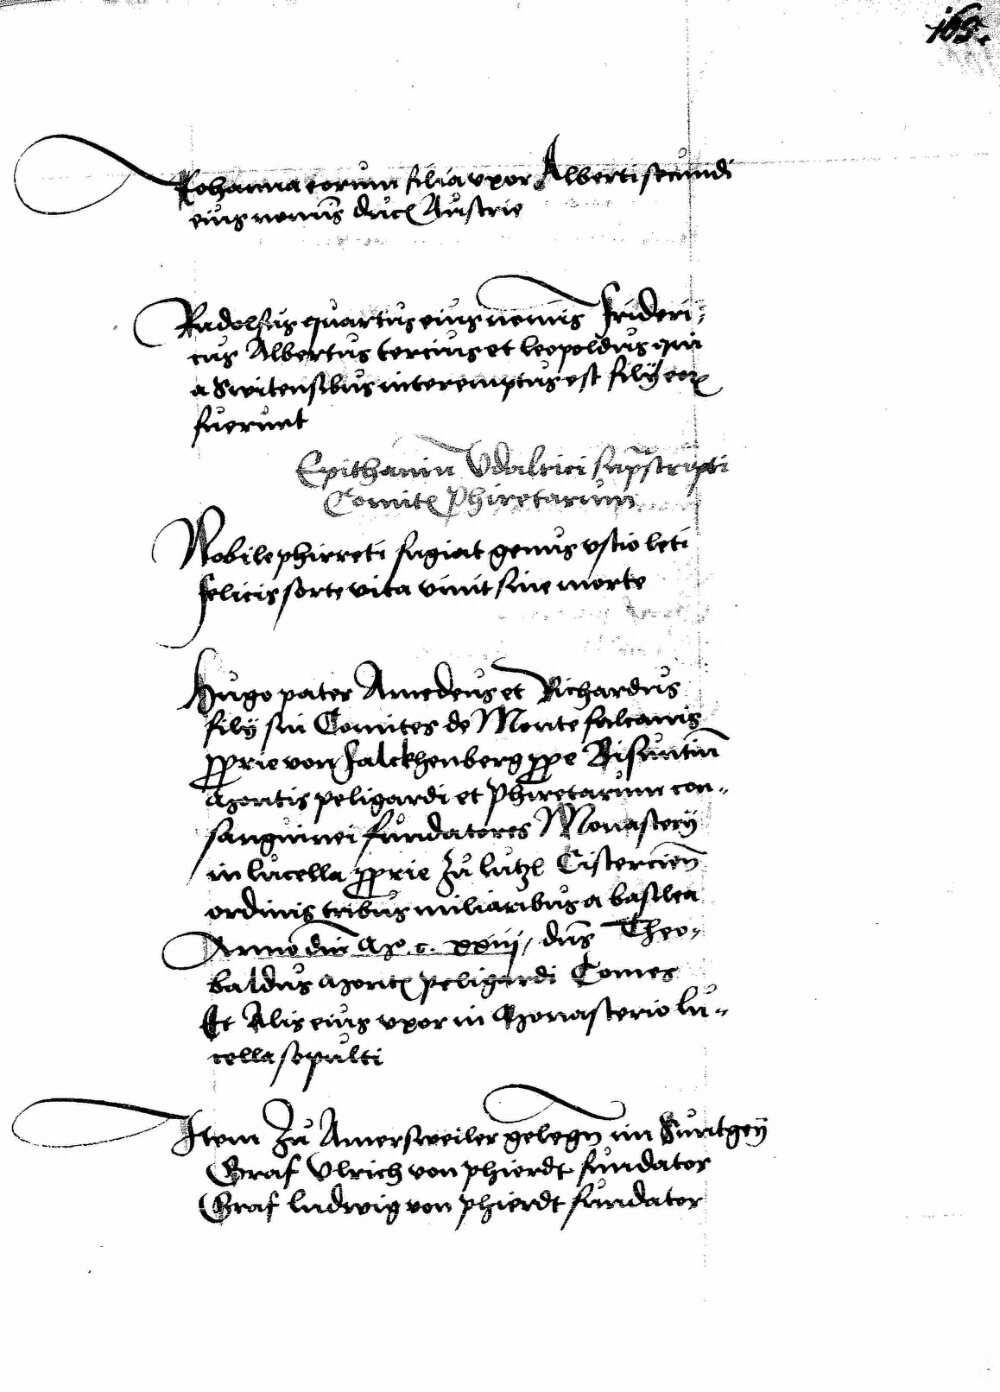 165.
Johanna eorum filia vxor Alberti secundi
eius nominis ducis Austrie
Rudolfus quartus eius nominis Frideri-
cus Albertus tercius et leopoldus qui
a Switensibus interemptus est filÿ eorum
fuerunt
Epithauiu Vdalrici supscripti
Comitis Phiretarum
Nobile phirreti fugiat genus vstio leti
felicis sorte vita viuit sine morte
Hugo pater Amedeus et Richardus
filÿ sui Comites de Monte falconis
proprie von Falckhenberg prope Bisuntin
Montis peligardi et Phiretarum con-
sanguinei fundatores Monasterÿ
in lucella proprie Zu lutzl Cistercien
ordinis tribus miliaribus a basilea
Anno dni Mo. c. xxiij, dns Theo-
baldus Montis peligardi Comes
Et Alis eius vxor in Monasterio lu-
cella sepulti
Item Zu Amersweiler gelegn im Suntgeÿ
Graf Vlrich von phierdt fundator
Graf ludwig von phierdt fundator